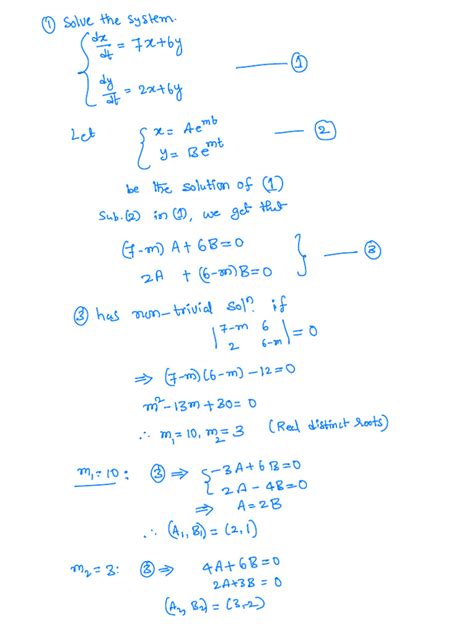 ① Solve the system.
dx/dt = 7x+6y
dy/dt = 2x+6y ——— ①
Let { x = Ae^mt
y = Be^mt —— ②
be the solution of (1)
Sub. (2) in (1), we get that
(7-m) A + 6B = 0
2A + (6-m)B = 0 } —— ③
③ has non-trivial sol? if
|7-m 6|
|2 6-m| = 0
⇒ (7-m)(6-m) -12 = 0
m² -13m + 30 = 0
∴ m₁ = 10, m₂ = 3 (Real distinct roots)
m₁ = 10: ③ ⇒ { -3A + 6B = 0
2A - 4B = 0
⇒ A = 2B
∴ (A₁, B₁) = (2, 1)
m₂ = 3: ③ ⇒ 4A + 6B = 0
2A + 3B = 0
(A₂, B₂) = (3, -2)